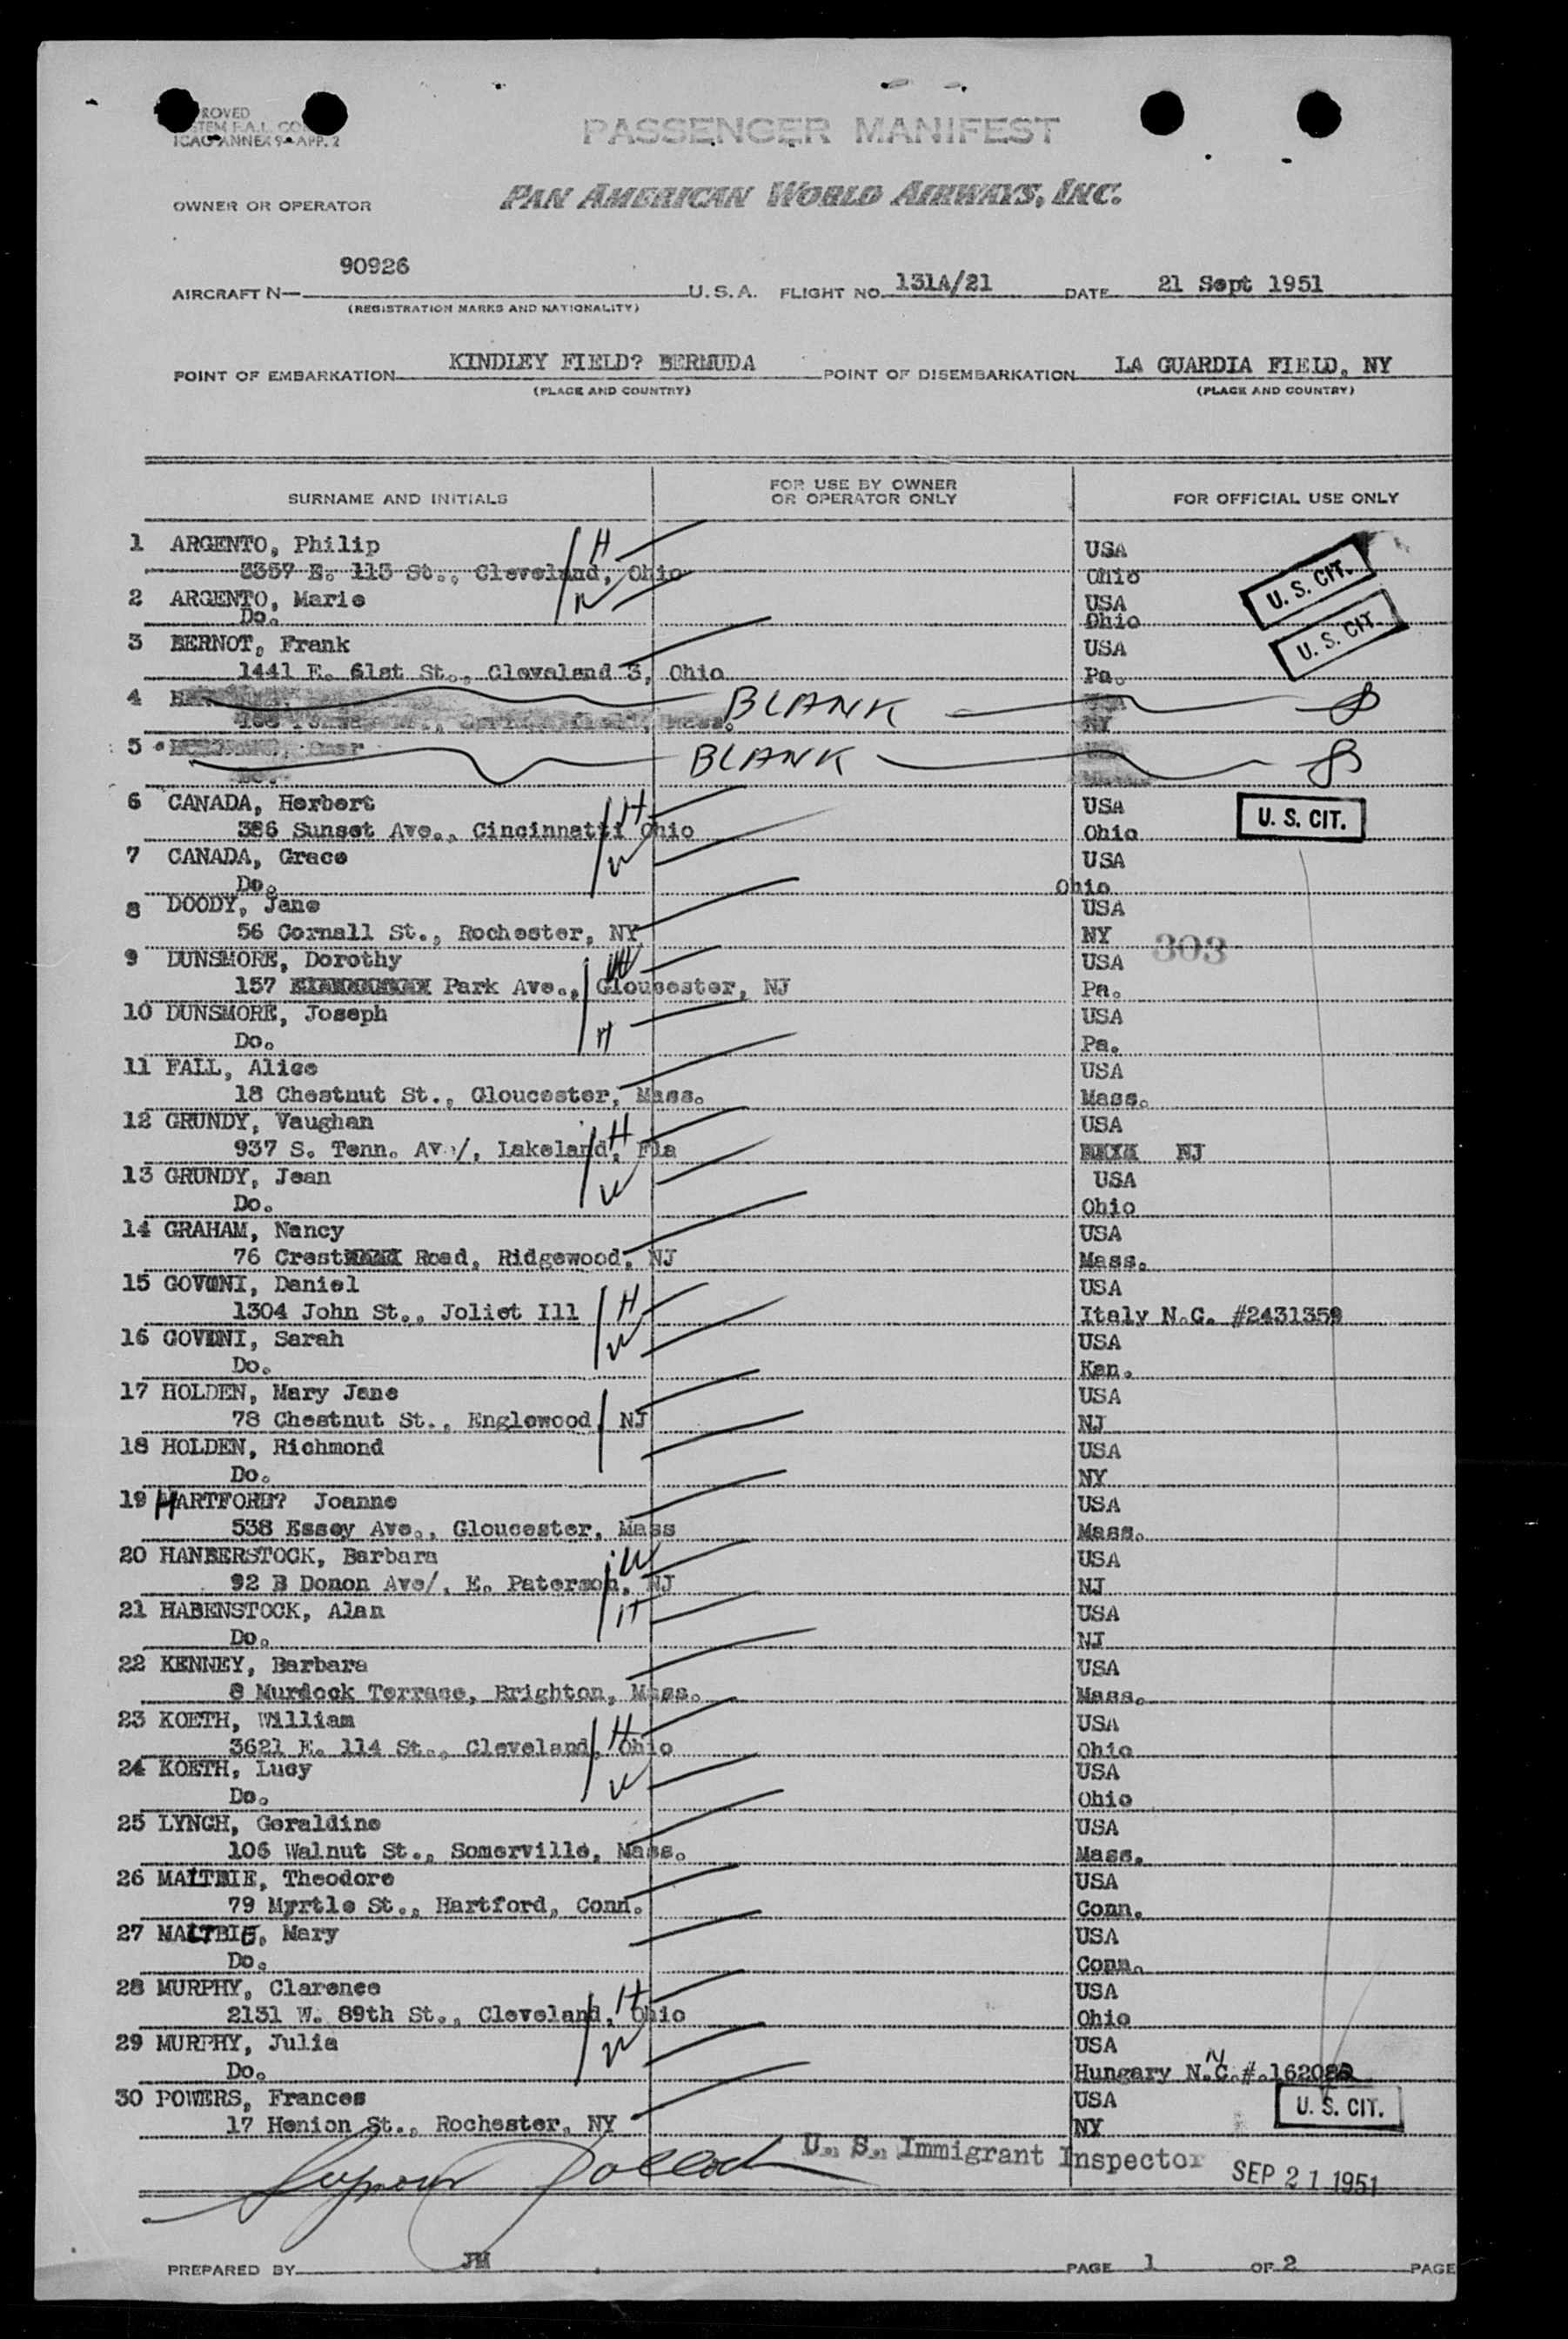 ROVED
STEM F.A.L. CO
ICAO ANNEX 9 - APP. 2
PASSENGER MANIFEST
OWNER OR OPERATOR
PAN AMERICAN WORLD AIRWAYS, INC.
90926
AIRCRAFT N— U.S.A. FLIGHT NO. 131A/21 DATE 21 Sept 1951
(REGISTRATION MARKS AND NATIONALITY)
POINT OF EMBARKATION KINDLEY FIELD? BERMUDA POINT OF DISEMBARKATION LA GUARDIA FIELD, NY
(PLACE AND COUNTRY) (PLACE AND COUNTRY)
SURNAME AND INITIALS FOR USE BY OWNER OR OPERATOR ONLY FOR OFFICIAL USE ONLY
1 ARGENTO, Philip H USA
3357 E. 113 St., Cleveland, Ohio Ohio U. S. CIT.
2 ARGENTO, Marie W USA
Do. Ohio U. S. CIT.
3 BERNOT, Frank USA
1441 E. 61st St., Cleveland 3, Ohio Pa.
4 BLANK
NY
5 BLANK
Do.
6 CANADA, Herbert H USA U. S. CIT.
386 Sunset Ave., Cincinnatti Ohio Ohio
7 CANADA, Grace W USA
Do. Ohio
8 DOODY, Jane USA
56 Cornall St., Rochester, NY NY 303
9 DUNSMORE, Dorothy W USA
157 Park Ave., Gloucester, NJ Pa.
10 DUNSMORE, Joseph H USA
Do. Pa.
11 FALL, Alice USA
18 Chestnut St., Gloucester, Mass. Mass.
12 GRUNDY, Vaughan H USA
937 S. Tenn. Av /, Lakeland, Fla NJ
13 GRUNDY, Jean W USA
Do. Ohio
14 GRAHAM, Nancy USA
76 Crest Road, Ridgewood, NJ Mass.
15 GOVONI, Daniel H USA
1304 John St., Joliet Ill Italy N.C. #2431359
16 GOVONI, Sarah W USA
Do. Kan.
17 HOLDEN, Mary Jane USA
78 Chestnut St., Englewood, NJ NJ
18 HOLDEN, Richmond USA
Do. NY
19 HARTFORD? Joanne USA
538 Essey Ave., Gloucester, Mass Mass.
20 HANBERSTOCK, Barbara W USA
92 B Donon Ave/, E. Paterson, NJ NJ
21 HABENSTOCK, Alan H USA
Do. NJ
22 KENNEY, Barbara USA
8 Murdock Terrase, Brighton, Mass. Mass.
23 KOETH, William H USA
3621 E. 114 St., Cleveland, Ohio Ohio
24 KOETH, Lucy W USA
Do. Ohio
25 LYNCH, Geraldine USA
106 Walnut St., Somerville, Mass. Mass.
26 MALTBIE, Theodore USA
79 Myrtle St., Hartford, Conn. Conn.
27 MALTBIE, Mary USA
Do. Conn.
28 MURPHY, Clarence H USA
2131 W. 89th St., Cleveland, Ohio Ohio
29 MURPHY, Julia W USA
Do. Hungary N.C.#.162082
30 POWERS, Frances USA U. S. CIT.
17 Henion St., Rochester, NY NY
U. S. Immigrant Inspector
SEP 21 1951
PREPARED BY JM PAGE 1 OF 2 PAGE